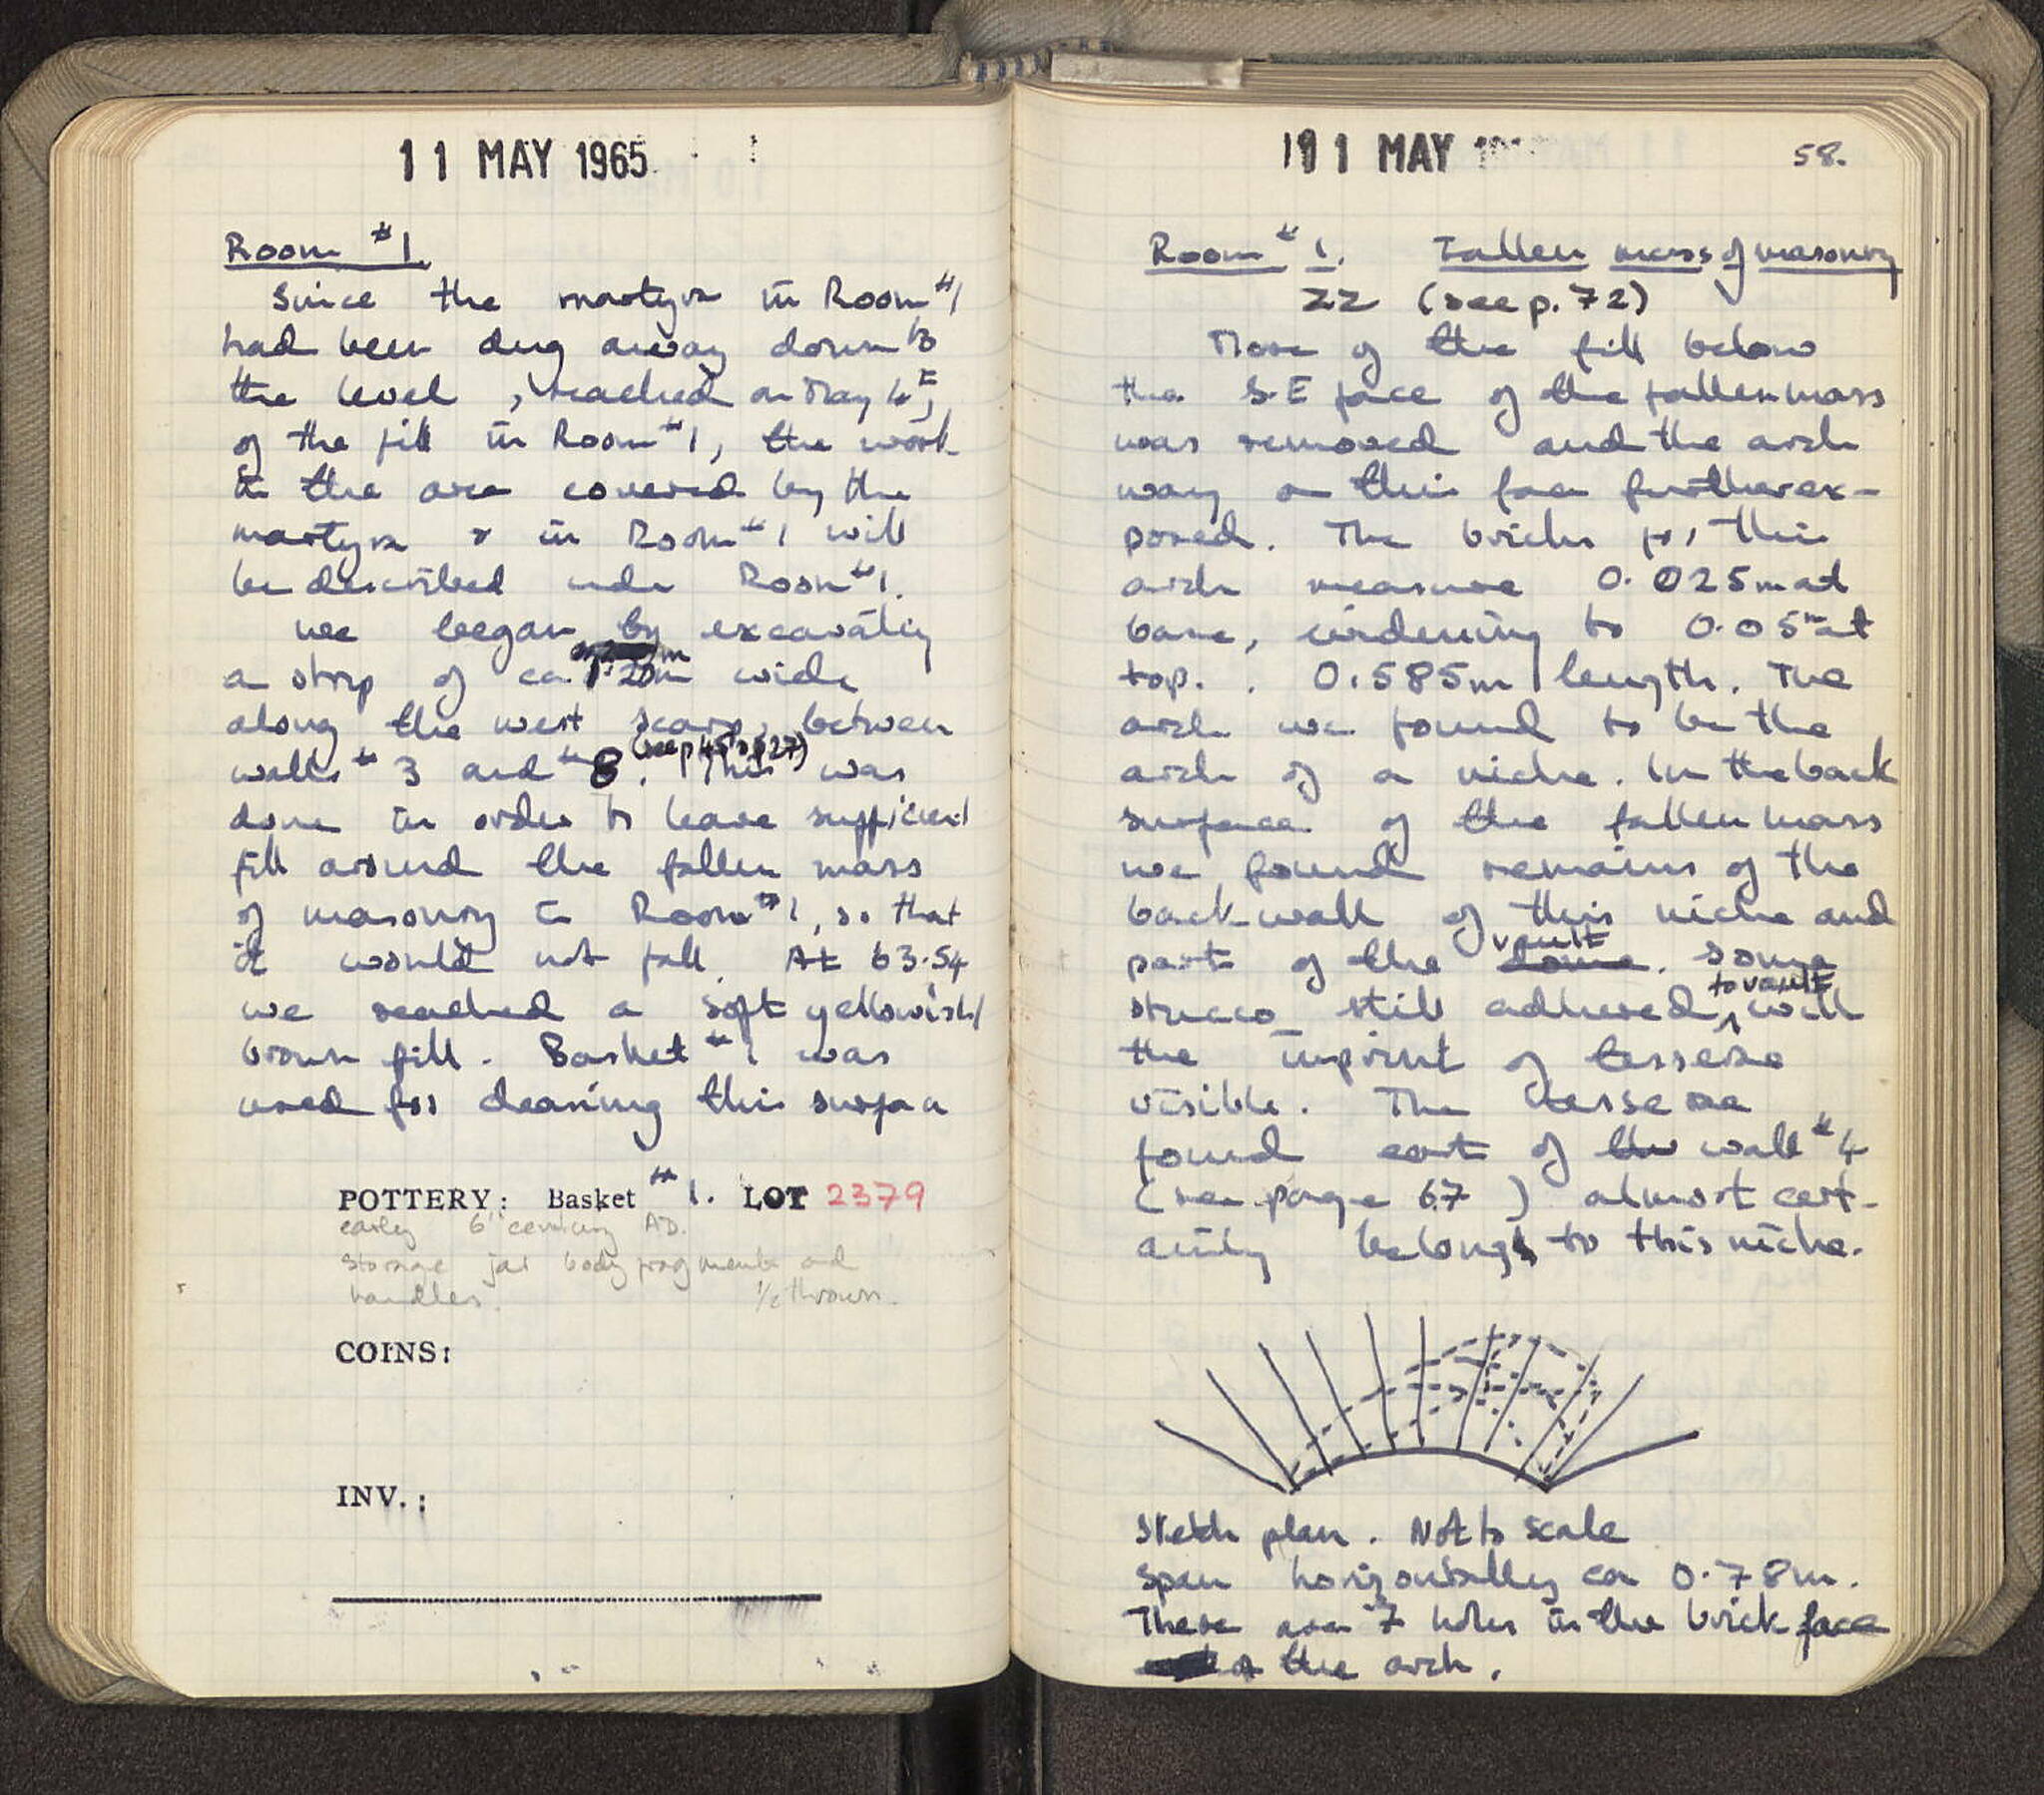 11 MAY 1965
Room #1.
Since the martyrs in Room #1
had been dug away down to
the level, reached on May 4th,
of the fill in Room #1, the work
in the area covered by the
martyrs & in Room #1 will
be described under Room #1.
we began by excavating
a strip of ca. 1.20m wide
along the west scarp, between
(see p 45 to p 27)
walls #3 and #8. This was
done in order to leave sufficient
fill around the fallen mass
of masonry in Room #1, so that
it would not fall. At 63.54
we reached a soft yellowish/
brown fill. Basket #1 was
used for cleaning this surface
POTTERY: Basket #1. LOT 2379
early 6th century AD.
storage jar body fragments and
handles. 1/2 thrown.
COINS:
INV.:
11 MAY
58.
Room #1. Fallen mass of masonry
ZZ (see p. 72)
More of the fill below
the S.E face of the fallen mass
was removed and the arch
way on this face further ex-
posed. The bricks for this
arch measure 0.025m at
base, widening to 0.05m at
top. 0.585m length. The
arch we found to be the
arch of a niche. In the back
surface of the fallen mass
we found remains of the
back wall of this niche and
vault
part of the dome. Some
to vault
stucco still adhered, with
the imprint of tesserae
visible. The tesserae
found east of the wall #4
(see page 67) almost cert-
ainly belongs to this niche.
Sketch plan. Not to scale
Span horizontally ca 0.78m.
There are 7 holes in the brick face
of the arch.